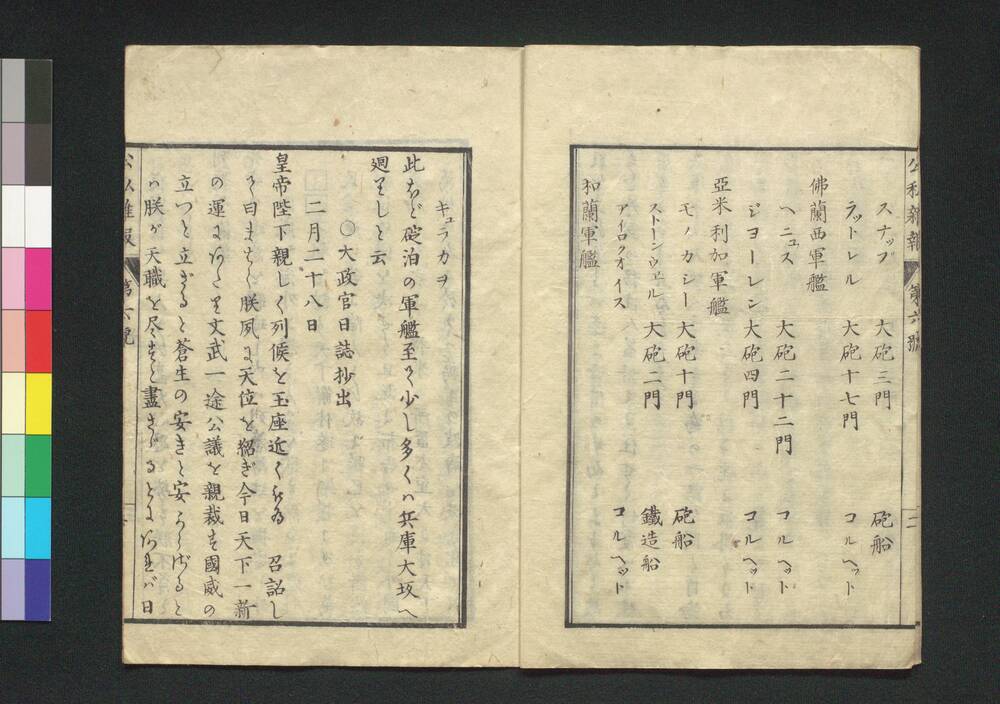 公私雑報
第六號
スナップ 大砲三門 砲船
ラットレル 大砲十七門 コルヘット
佛蘭西軍艦
ヘニュス 大砲二十二門 コルヘット
ジヨーレン 大砲四門 コルヘット
亞米利加軍艦
モノカシー 大砲十門 砲船
ストーンウエール 大砲二門 鐵造船
アイロクオイス コルヘット
和蘭軍艦
キュラカヲ
此ほど碇泊の軍艦至て少し多くハ兵庫大坂へ
廻りしと云
〇大政官日誌抄出
二月二十八日
皇帝陛下親しく列候を玉座近く 召詔し
て曰 朕夙に天位を紹ぎ今日天下一新
の運に 文武一途公議を親裁す國威の
立つと立ざると蒼生の安きと安からざると
ハ朕が天職を尽すと盡さゞるとに バ日
第六號